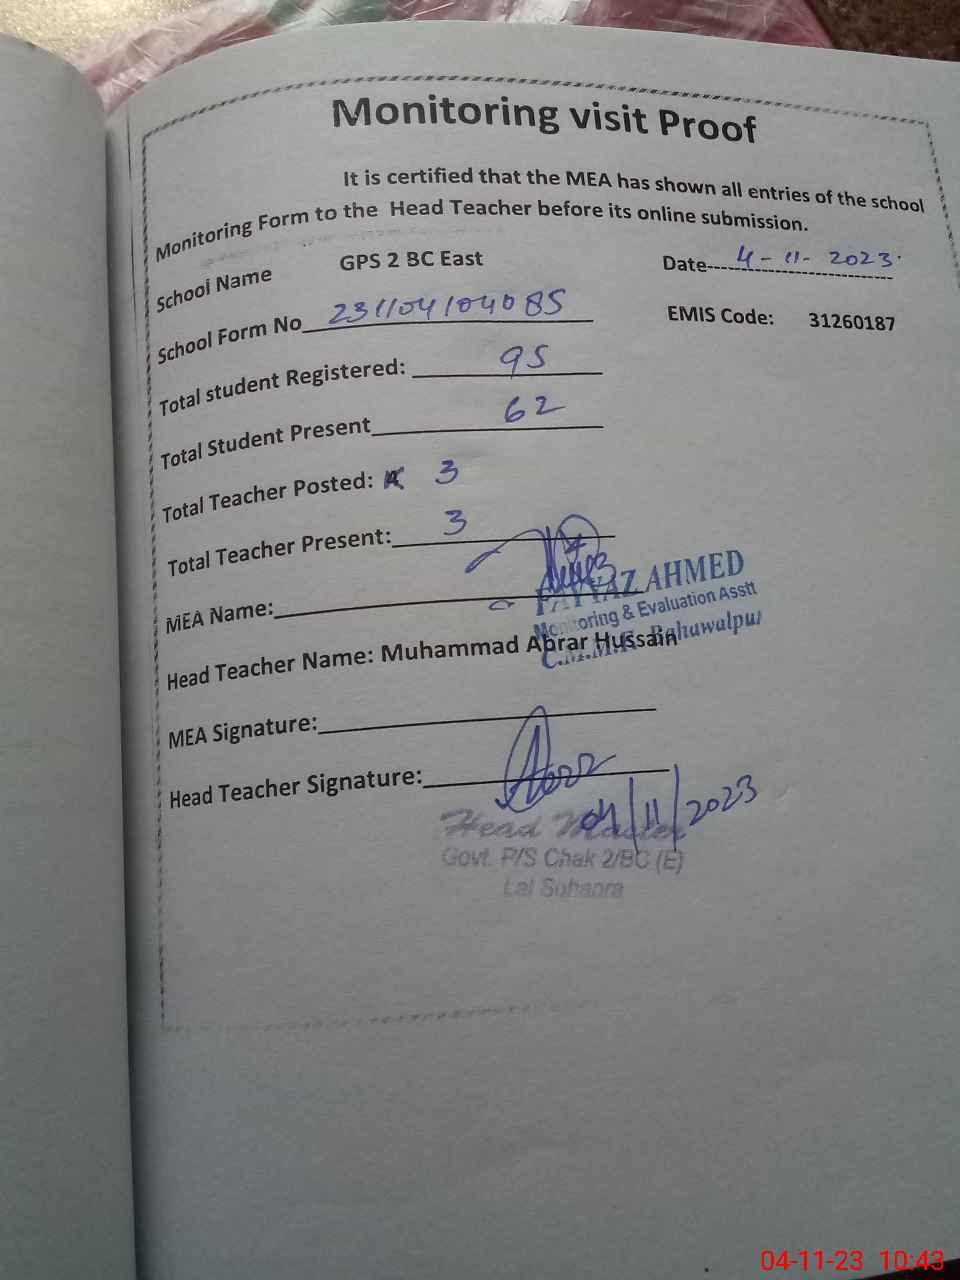 Monitoring visit Proof
It is certified that the MEA has shown all entries of the school
Monitoring Form to the Head Teacher before its online submission.
School Name GPS 2 BC East Date 4-11-2023
School Form No 231104104085 EMIS Code: 31260187
Total student Registered: 95
Total Student Present 62
Total Teacher Posted: 3
Total Teacher Present: 3
MEA Name:
FAYYAZ AHMED
Monitoring & Evaluation Asstt
C.M.M.F. Bahawalpur
Head Teacher Name: Muhammad Abrar Hussain
MEA Signature:
Head Teacher Signature:
04/11/2023
Head Master
Govt. P/S Chak 2/BC (E)
Lal Sohanra
04-11-23 10:43